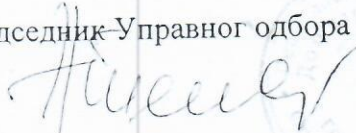 дседник Управног одбора